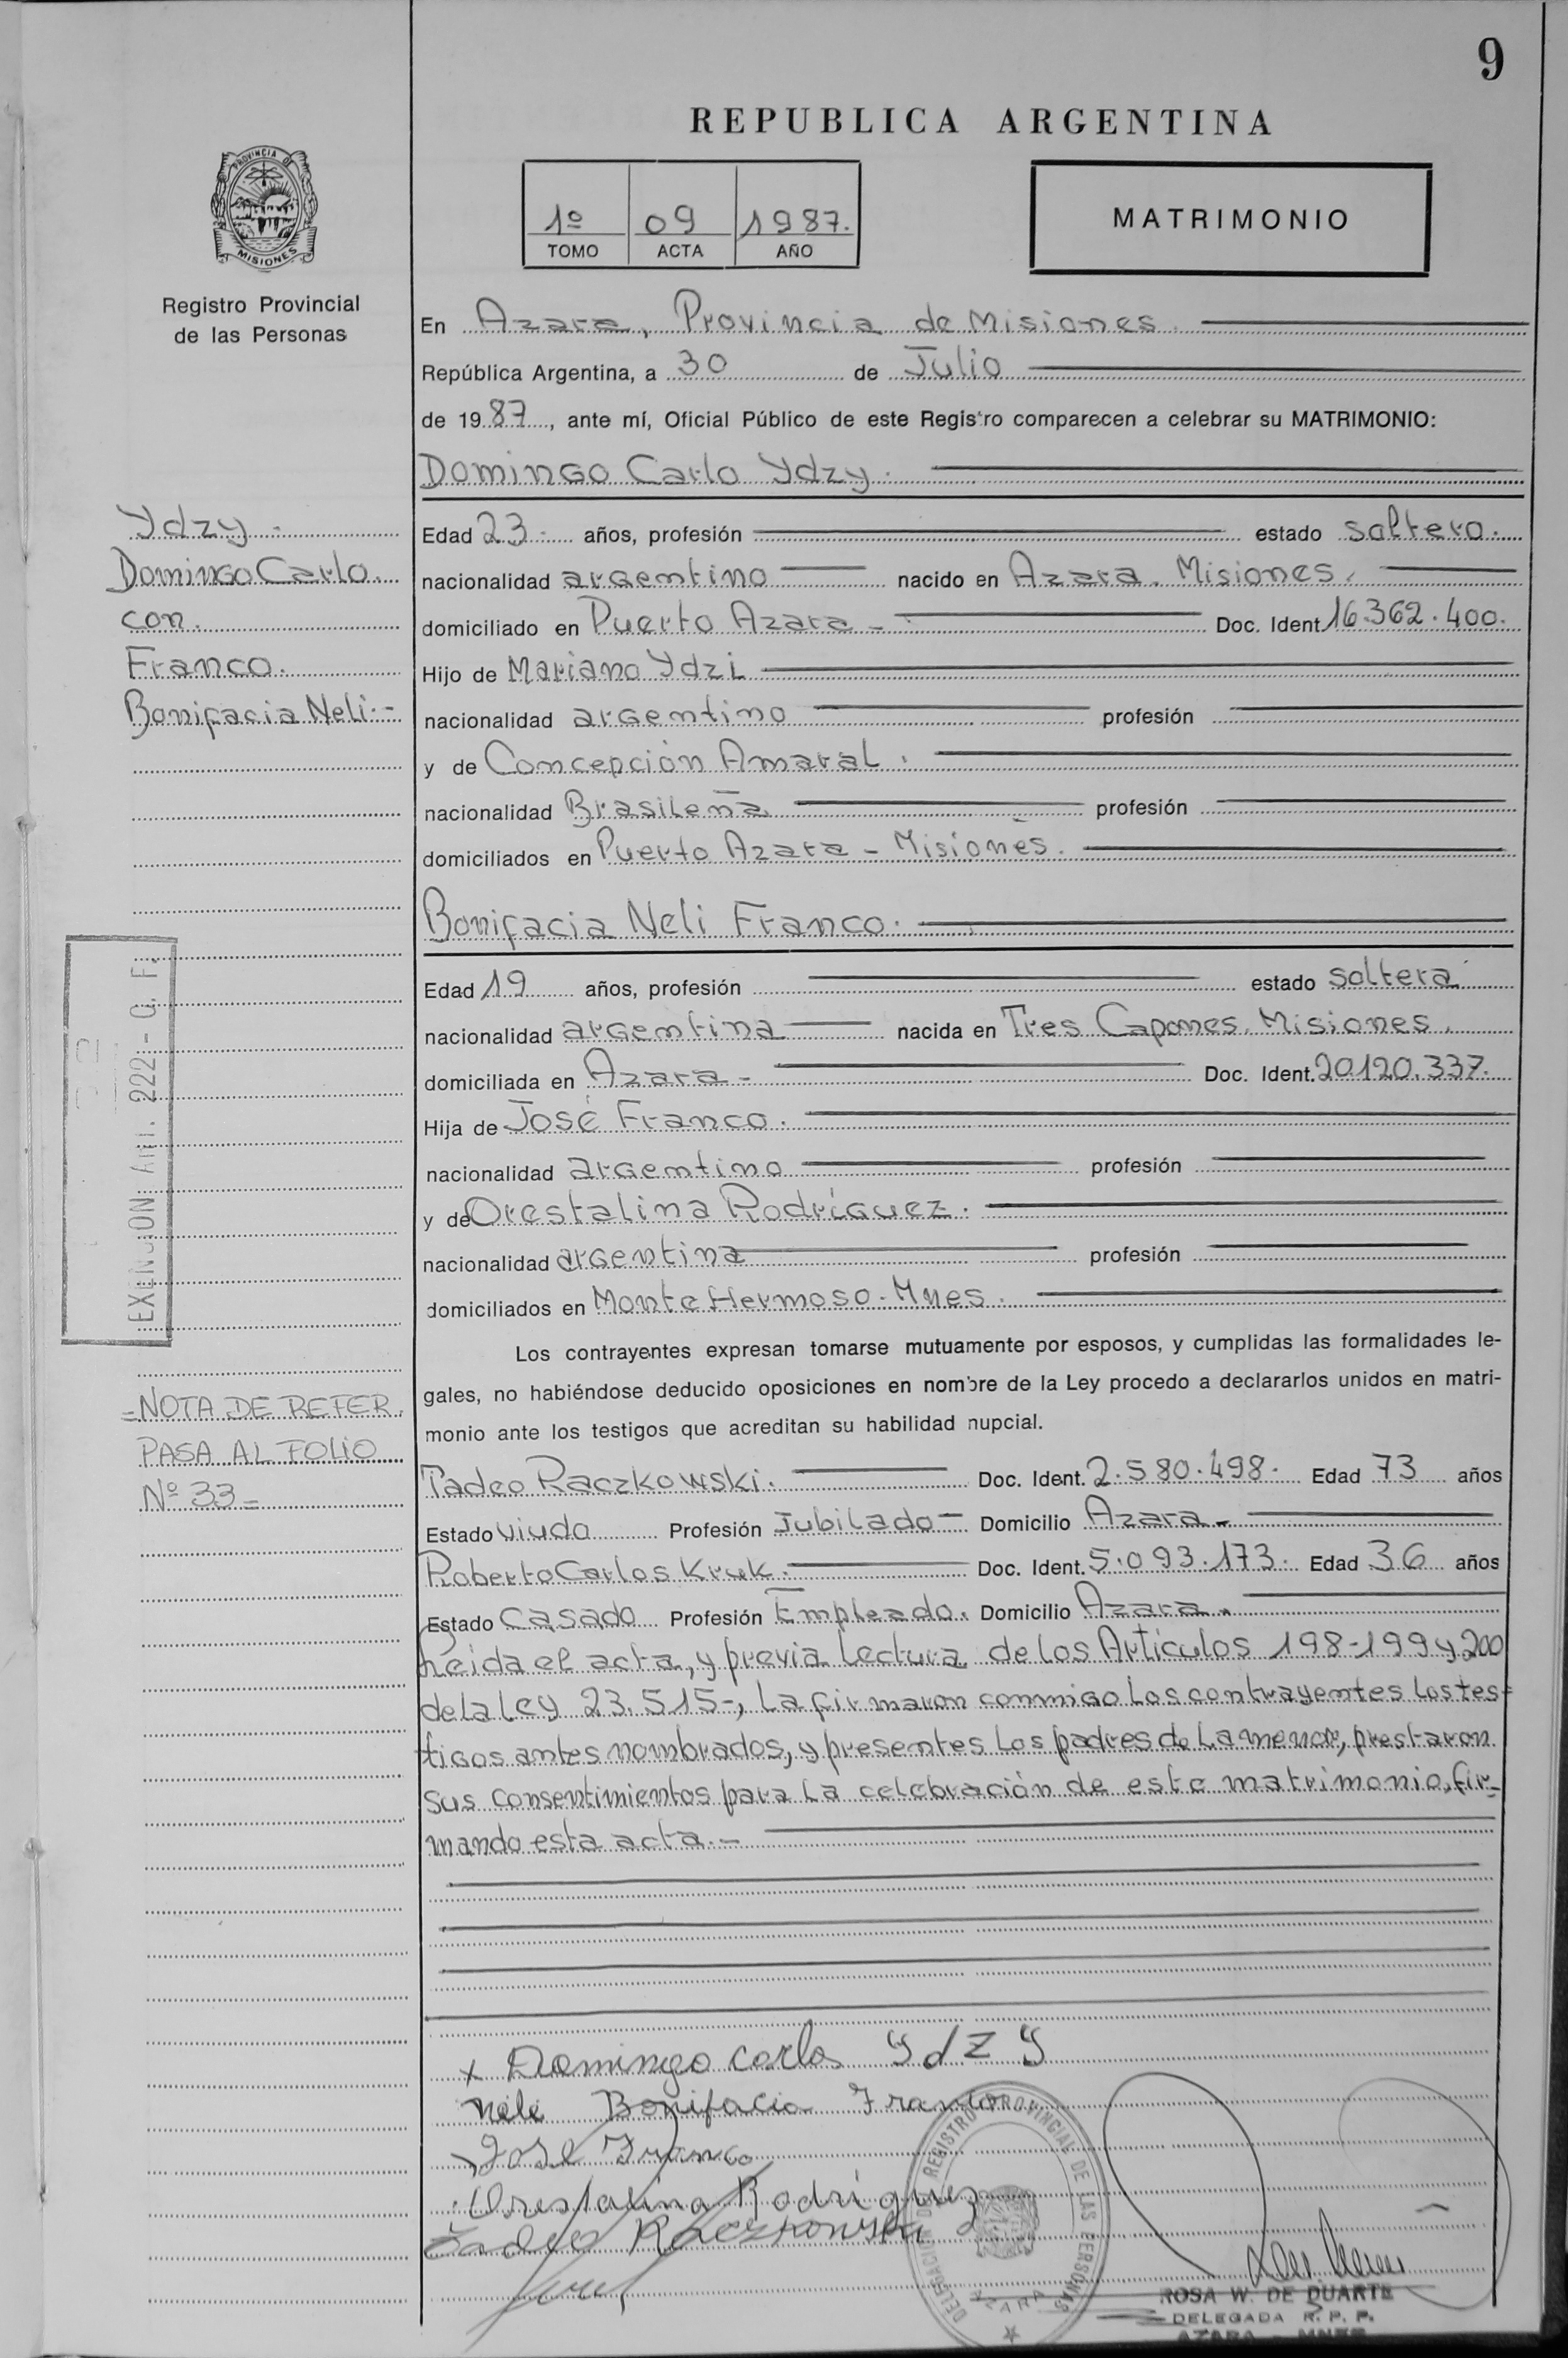 9
REPUBLICA ARGENTINA
PROVINCIA D
MISIONES
Registro Provincial
de las Personas
1º 09 1987.
TOMO ACTA AÑO
MATRIMONIO
En Azara, Provincia de Misiones.
República Argentina, a 30 de Julio
de 1987, ante mí, Oficial Público de este Registro comparecen a celebrar su MATRIMONIO:
Domingo Carlo Ydzy.
Ydzy -
Domingo Carlo.
con.
Franco.
Bonifacia Neli.-
Edad 23- años, profesión estado soltero.
nacionalidad argentino nacido en Azara. Misiones.
domiciliado en Puerto Azara - Doc. Ident. 16.362.400.
Hijo de Mariano Ydzi
nacionalidad argentino profesión
y de Concepción Amaral.
nacionalidad Brasileña profesión
domiciliados en Puerto Azara - Misiones.
Bonifacia Neli Franco.
Edad 19 años, profesión estado soltera
nacionalidad argentina nacida en Tres Capones. Misiones.
domiciliada en Azara - Doc. Ident. 20.120.337.
Hija de José Franco.
nacionalidad argentino profesión
y de Orestalina Rodríguez.
nacionalidad argentina profesión
domiciliados en Monte Hermoso - Mnes.
EXENSION: Art. 222 - C. F.
Los contrayentes expresan tomarse mutuamente por esposos, y cumplidas las formalidades le-
gales, no habiéndose deducido oposiciones en nombre de la Ley procedo a declararlos unidos en matri-
monio ante los testigos que acreditan su habilidad nupcial.
=NOTA DE REFER.
PASA AL FOLIO
Nº 33=
Tadeo Raczkowski. Doc. Ident. 2.580.498. Edad 73 años
Estado viudo Profesión Jubilado Domicilio Azara -
Roberto Carlos Kruk. Doc. Ident. 5.093.173. Edad 36 años
Estado casado Profesión Empleado. Domicilio Azara.
Leida el acta, y previa lectura de los Artículos 198-199 y 200
de la ley 23.515-, la firmaron conmigo los contrayentes los tes-
tigos antes nombrados, y presentes los padres de la menor, prestaron
sus consentimientos para la celebración de este matrimonio, fir-
mando esta acta.-
x Domingo carlos Ydzy
Neli Bonifacia Franco
José Franco
Orestalina Rodríguez
Tadeo Raczkowski
DELEGACION DEL REGISTRO PROVINCIAL DE LAS PERSONAS
AZARA
ROSA W. DE DUARTE
DELEGADA R. P. P.
AZARA - MNES